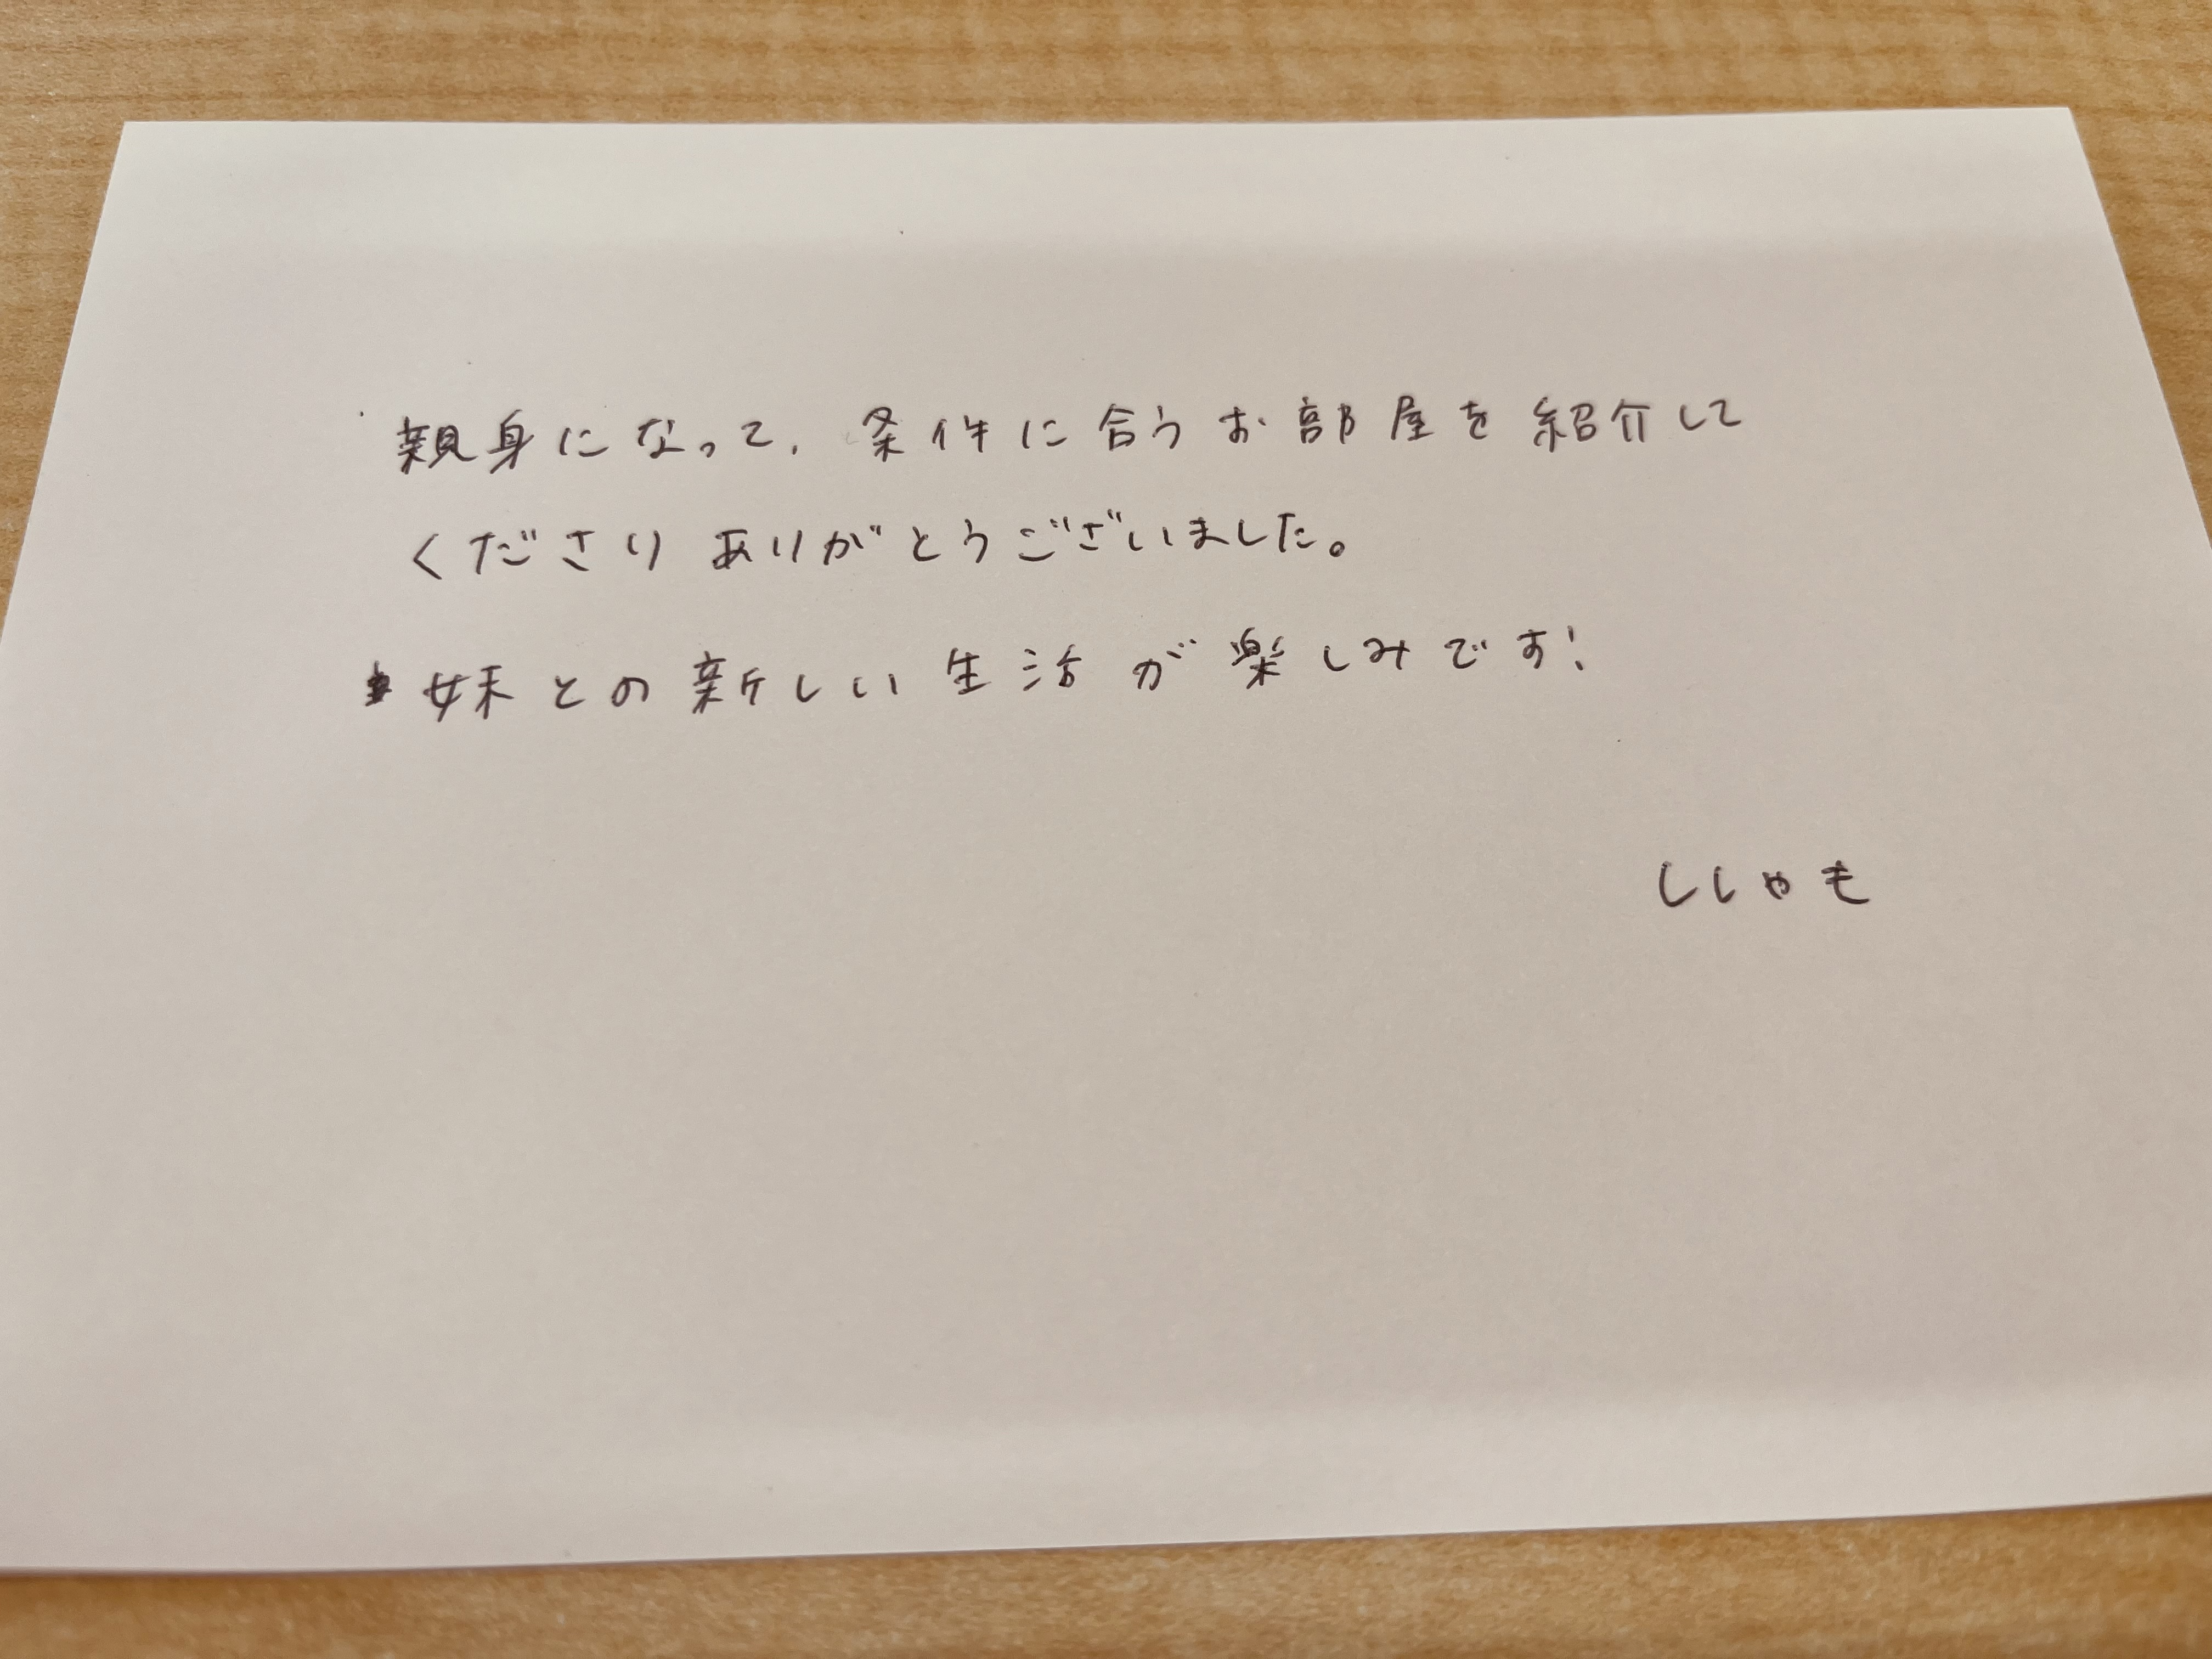 親身になって、条件に合うお部屋を紹介して
くださりありがとうございました。
妹との新しい生活が楽しみです!
ししゃも